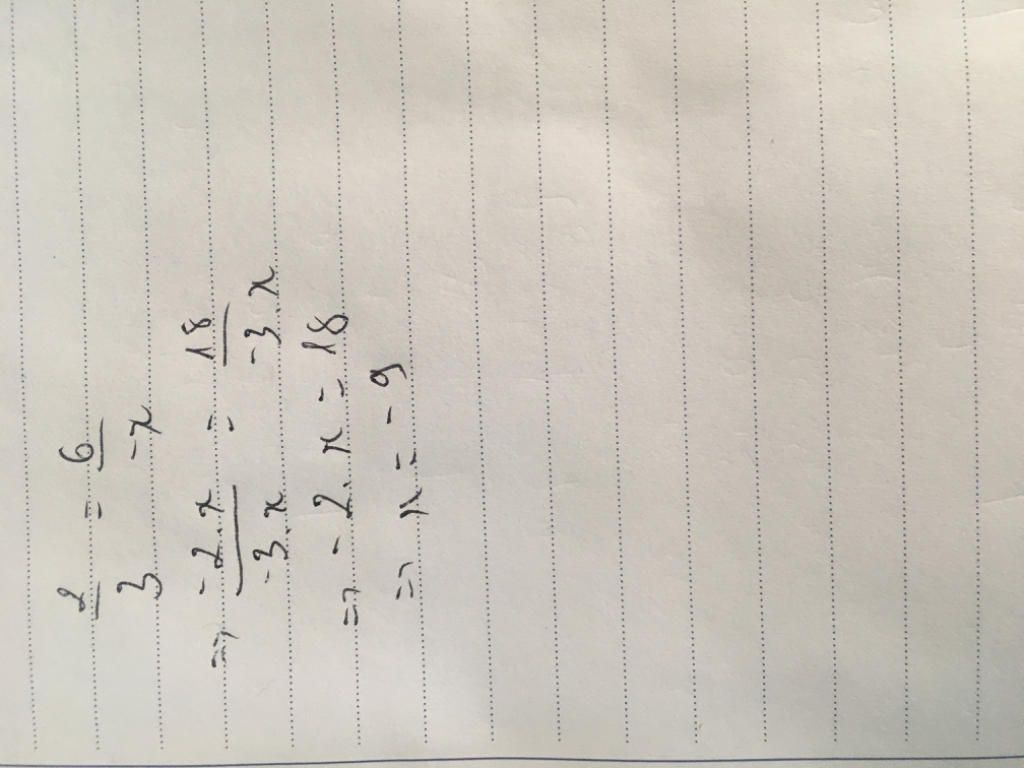 2/3 = 6/-x
=> -2.x/-3.x = 18/-3.x
=> -2.x = 18
=> x = -9